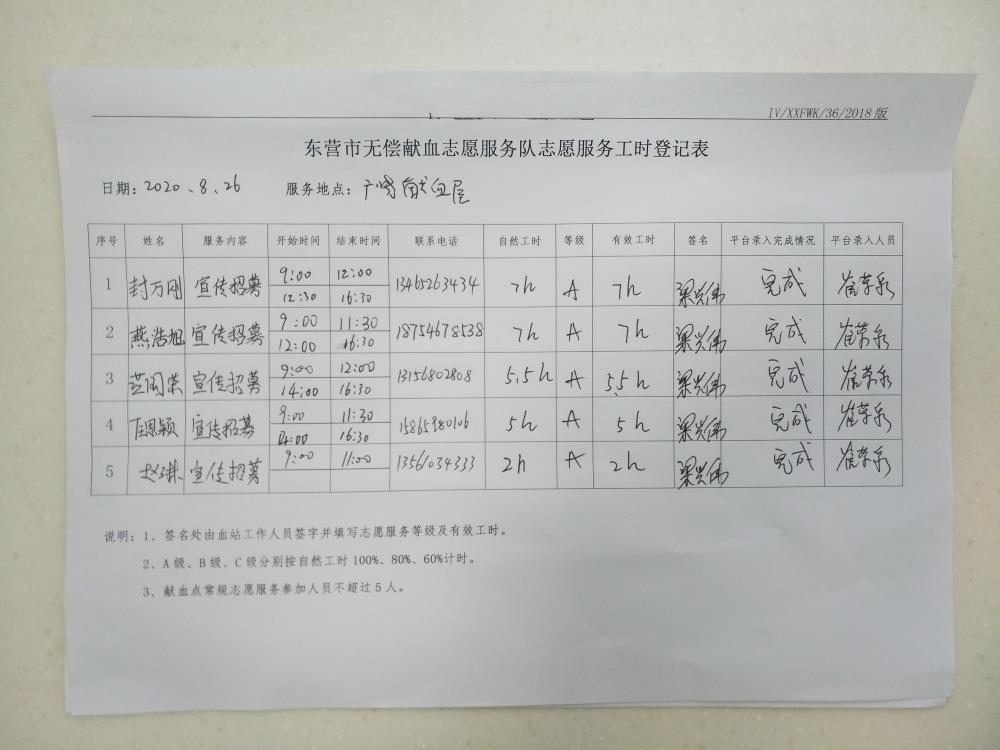 IV/XXFWK/36/2018版
东营市无偿献血志愿服务队志愿服务工时登记表
日期：2020.8.26 服务地点：广饶献血屋
序号 姓名 服务内容 开始时间 结束时间 联系电话 自然工时 等级 有效工时 签名 平台录入完成情况 平台录入人员
1 封万刚 宣传招募 9:00 12:00 13465263434 7h A 7h 梁兴伟 完成 崔荣泉
12:30 16:30
2 燕浩旭 宣传招募 9:00 11:30 18754678538 7h A 7h 梁兴伟 完成 崔荣泉
12:00 16:30
3 宣传招募 9:00 12:00 13156802808 5.5h A 5.5h 梁兴伟 完成 崔荣泉
14:00 16:30
4 宣传招募 9:00 11:30 15865980106 5h A 5h 梁兴伟 完成 崔荣泉
14:00 16:30
5 宣传招募 9:00 11:00 13561034333 2h A 2h 梁兴伟 完成 崔荣泉
说明：1、签名处由血站工作人员签字并填写志愿服务等级及有效工时。
2、A级、B级、C级分别按自然工时100%、80%、60%计时。
3、献血点常规志愿服务参加人员不超过5人。